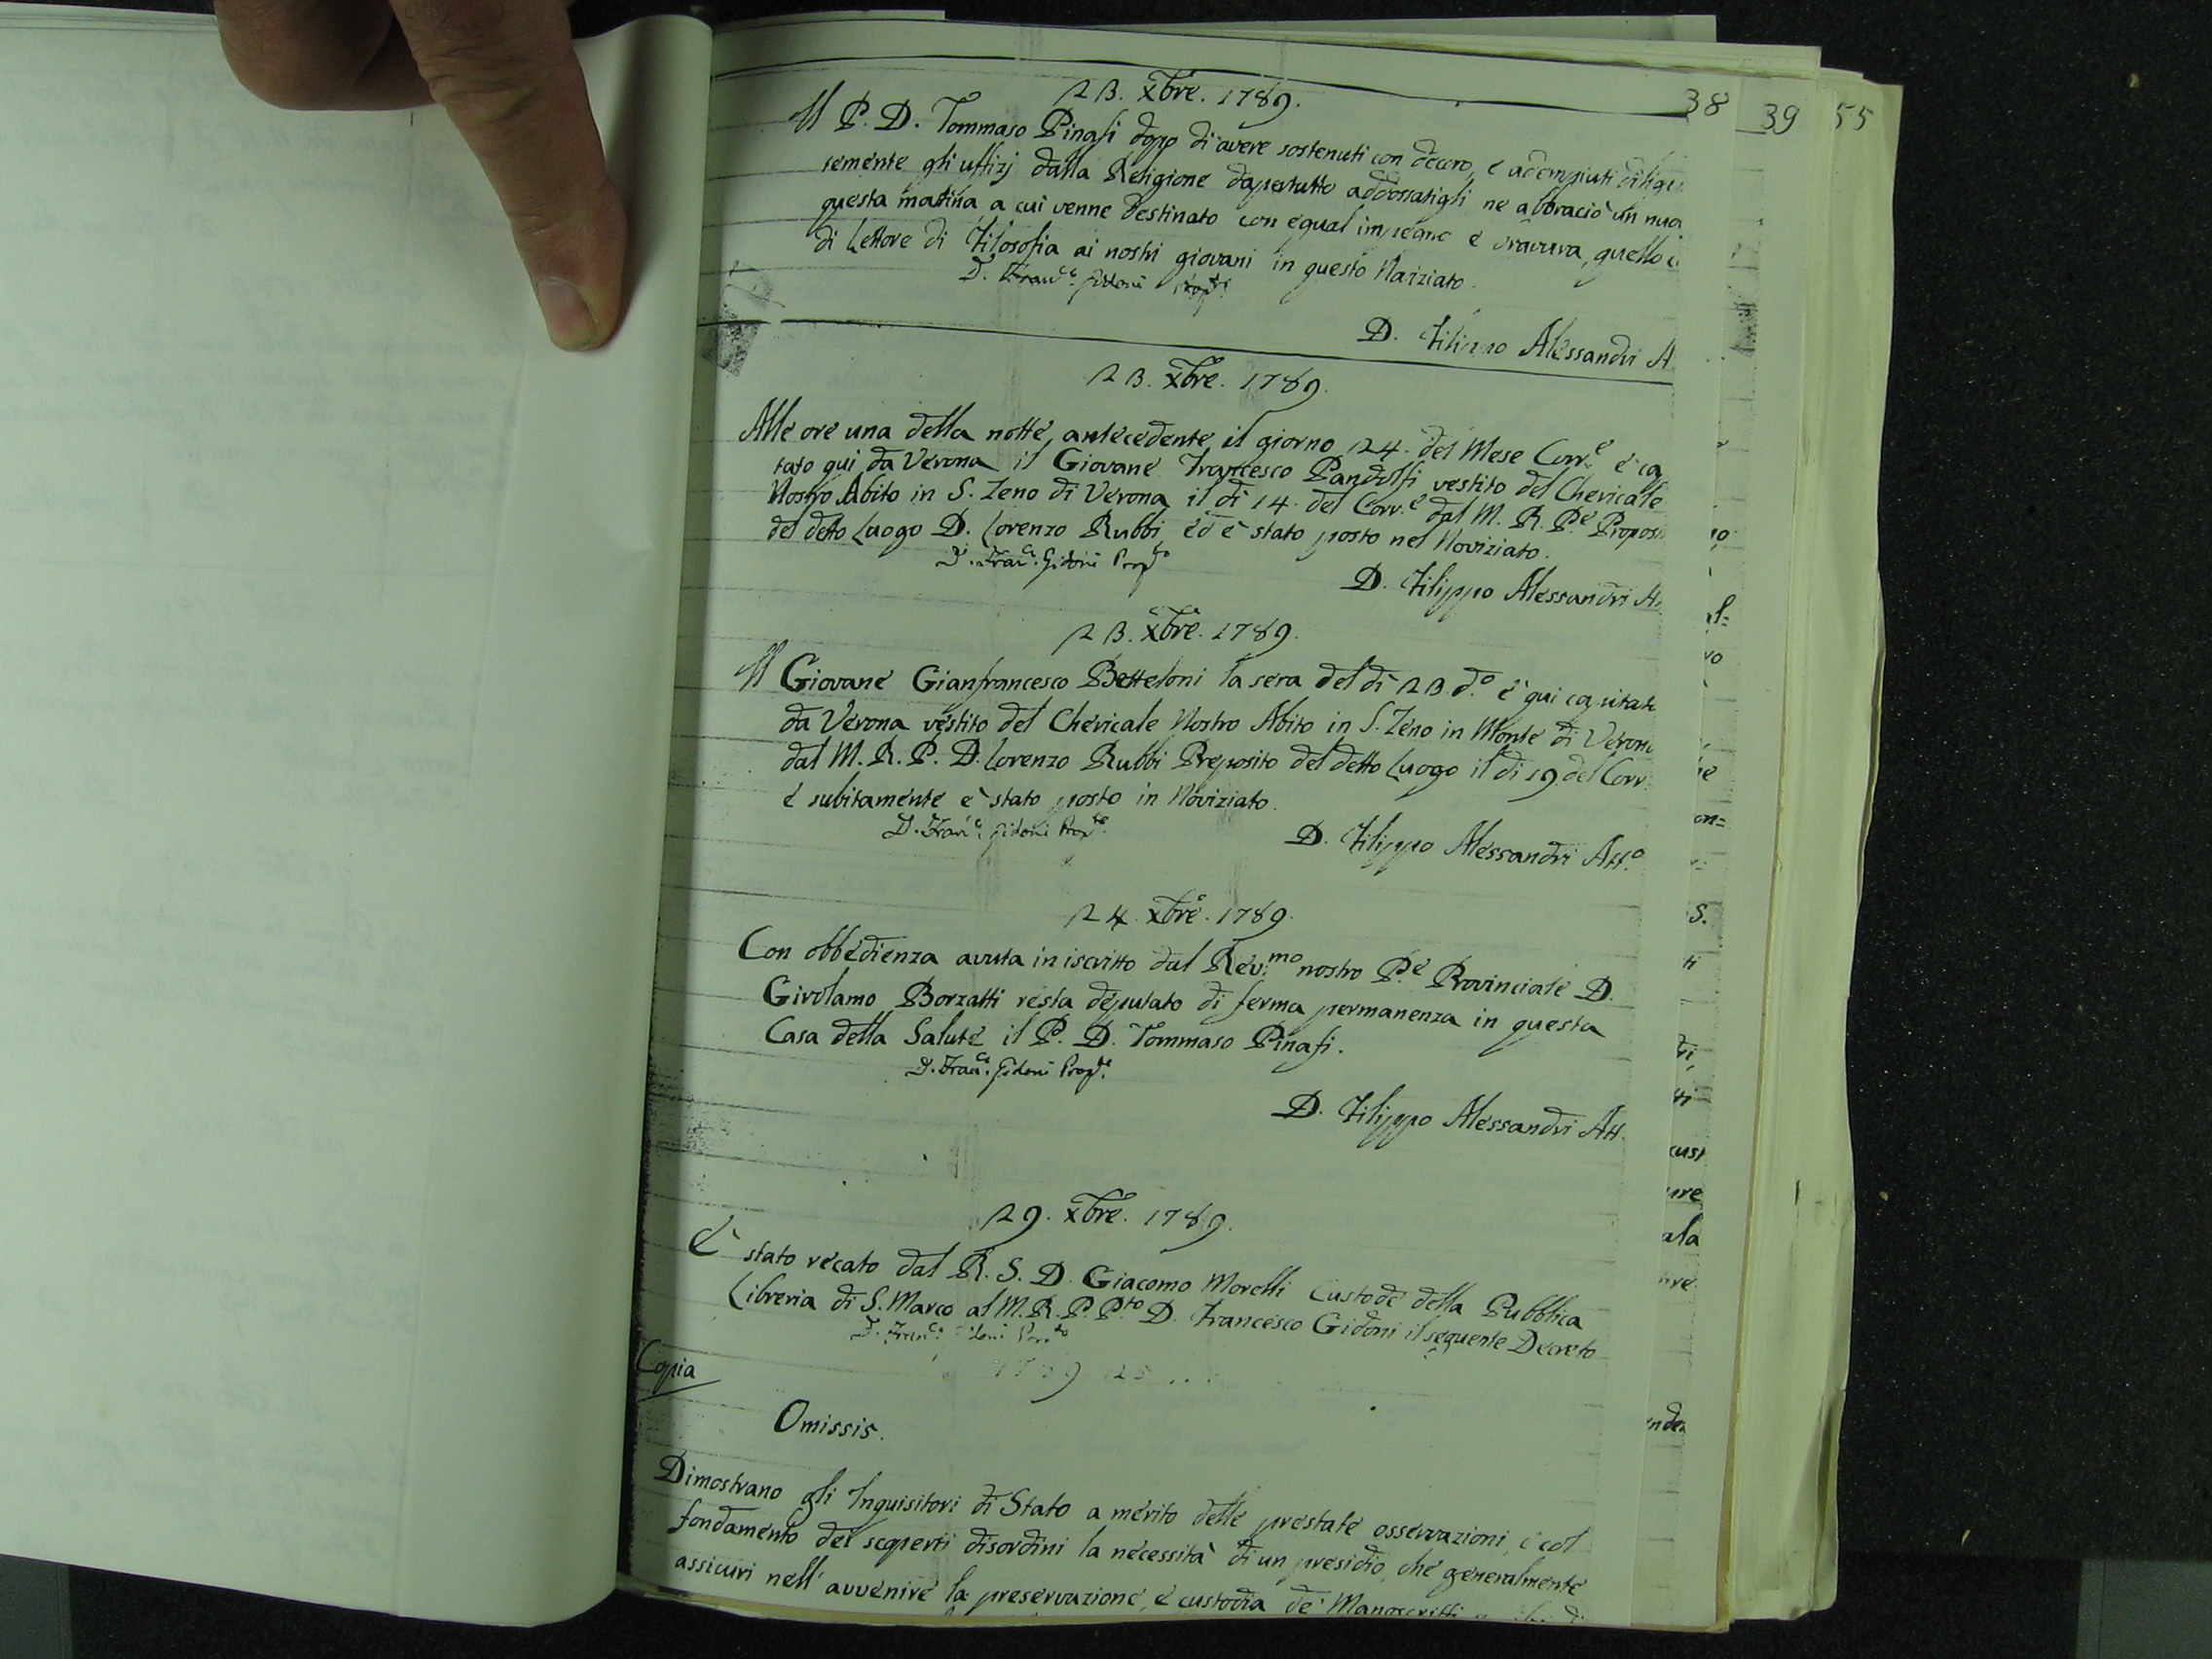 38 39 55
23. Xbre. 1789.
Il P. D. Tommaso Pinasi dopo di avere sostenuti con decoro, e adempiuti dilige
temente gli uffizj dalla Religione dapertutto addossatigli ne abbraciò un nuo
questa mattina, a cui venne destinato con egual impegno e bravura, quello
di Lettore di Filosofia ai nostri giovani in questo Noviziato.
D. Franco. Gidoni
D. Filippo Alessandri A
23. Xbre. 1789.
Alle ore una della notte, antecedente il giorno 24. del Mese Corr.e è ca
tato qui da Verona il Giovane Francesco Pandolfi vestito del Chericale
Nostro Abito in S. Zeno di Verona il dì 14. del Corr.e dal M. R. P.e Propos
del detto Luogo D. Lorenzo Rubbi, ed è stato posto nel Noviziato.
D. Franco. Gidoni Prepto
D. Filippo Alessandri A
23. Xbre. 1789.
Il Giovane Gianfrancesco Betteloni la sera del dì 23. d.o è qui capitat
da Verona vestito del Chericale Nostro Abito in S. Zeno in Monte di Veron
dal M. R. P. D. Lorenzo Rubbi Preposito del detto Luogo il dì 19. del Corr
e subitamente è stato posto in Noviziato.
D. Franc. Gidoni Prepto.
D. Filippo Alessandri Att.o
24. Xbre. 1789.
Con obbedienza avuta in iscritto dal Rev.mo nostro P.e Provinciale D.
Girolamo Borzatti resta deputato di ferma permanenza in questa
Casa della Salute il P. D. Tommaso Pinasi.
D. Franco. Gidoni Prepto.
D. Filippo Alessandri Att.
29. Xbre. 1789.
È stato recato dal R. S. D. Giacomo Morelli Custode della Pubblica
Libreria di S. Marco al M. R. P. P.to D. Francesco Gidoni il seguente Decreto
D. Franc. Gidoni
Copia
Omissis.
Dimostrano gli Inquisitori di Stato a merito delle prestate osservazioni, e col
fondamento dei scoperti disordini la necessità di un presidio, che generalmente
assicuri nell'avvenire la preservazione, e custodia de' Manoscritti